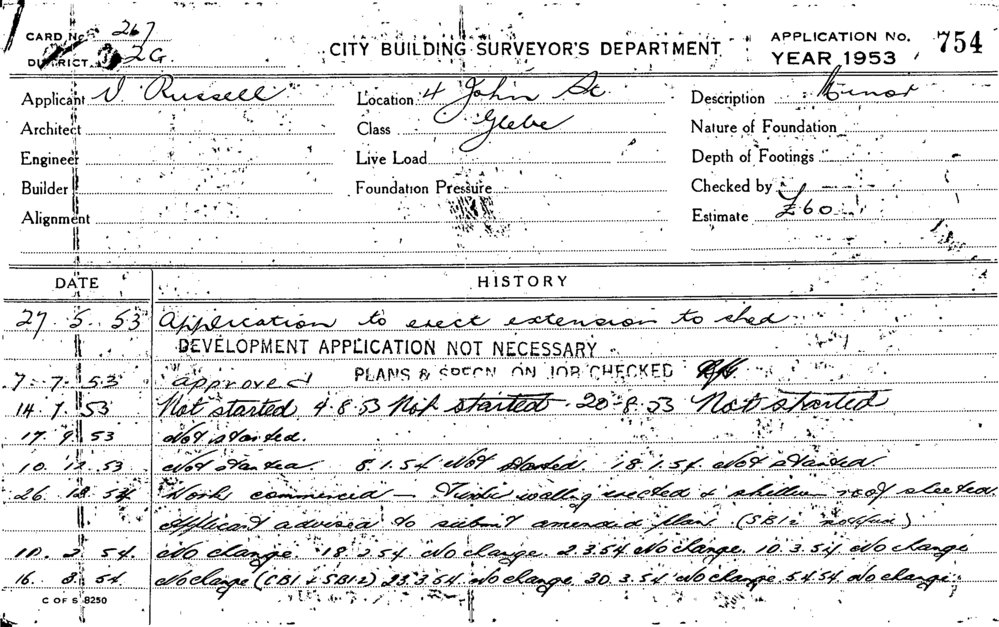 CARD No. 267
DISTRICT 2G.
CITY BUILDING SURVEYOR'S DEPARTMENT
APPLICATION No. 754
YEAR 1953
Applicant V Russell Location 4 John St Description Minor
Architect Class Glebe Nature of Foundation
Engineer Live Load Depth of Footings
Builder Foundation Pressure Checked by
Alignment Estimate £60
DATE HISTORY
27 5 53 Application to erect extension to shed
DEVELOPMENT APPLICATION NOT NECESSARY
7 7 53 approved PLANS & SPECN ON JOB CHECKED
14 7 53 Not started 4.8.53 Not started 20-8.53 Not started
17 9 53 Not started.
10 12 53 Not started. 8.1.54 Not started 18.1.54 Not started
26 54 Work commenced — walling erected & roof sheeted.
Applicant advised to submit amended plan. (SB12)
2 54 No change. 18 2 54 No change. 2.3.54 No change. 10.3.54 No change
16. 3. 54 No change (CB1 & SB12) 23.3.54 No change 30.3.54 No change 5.4.54 No change
C OF S 8250